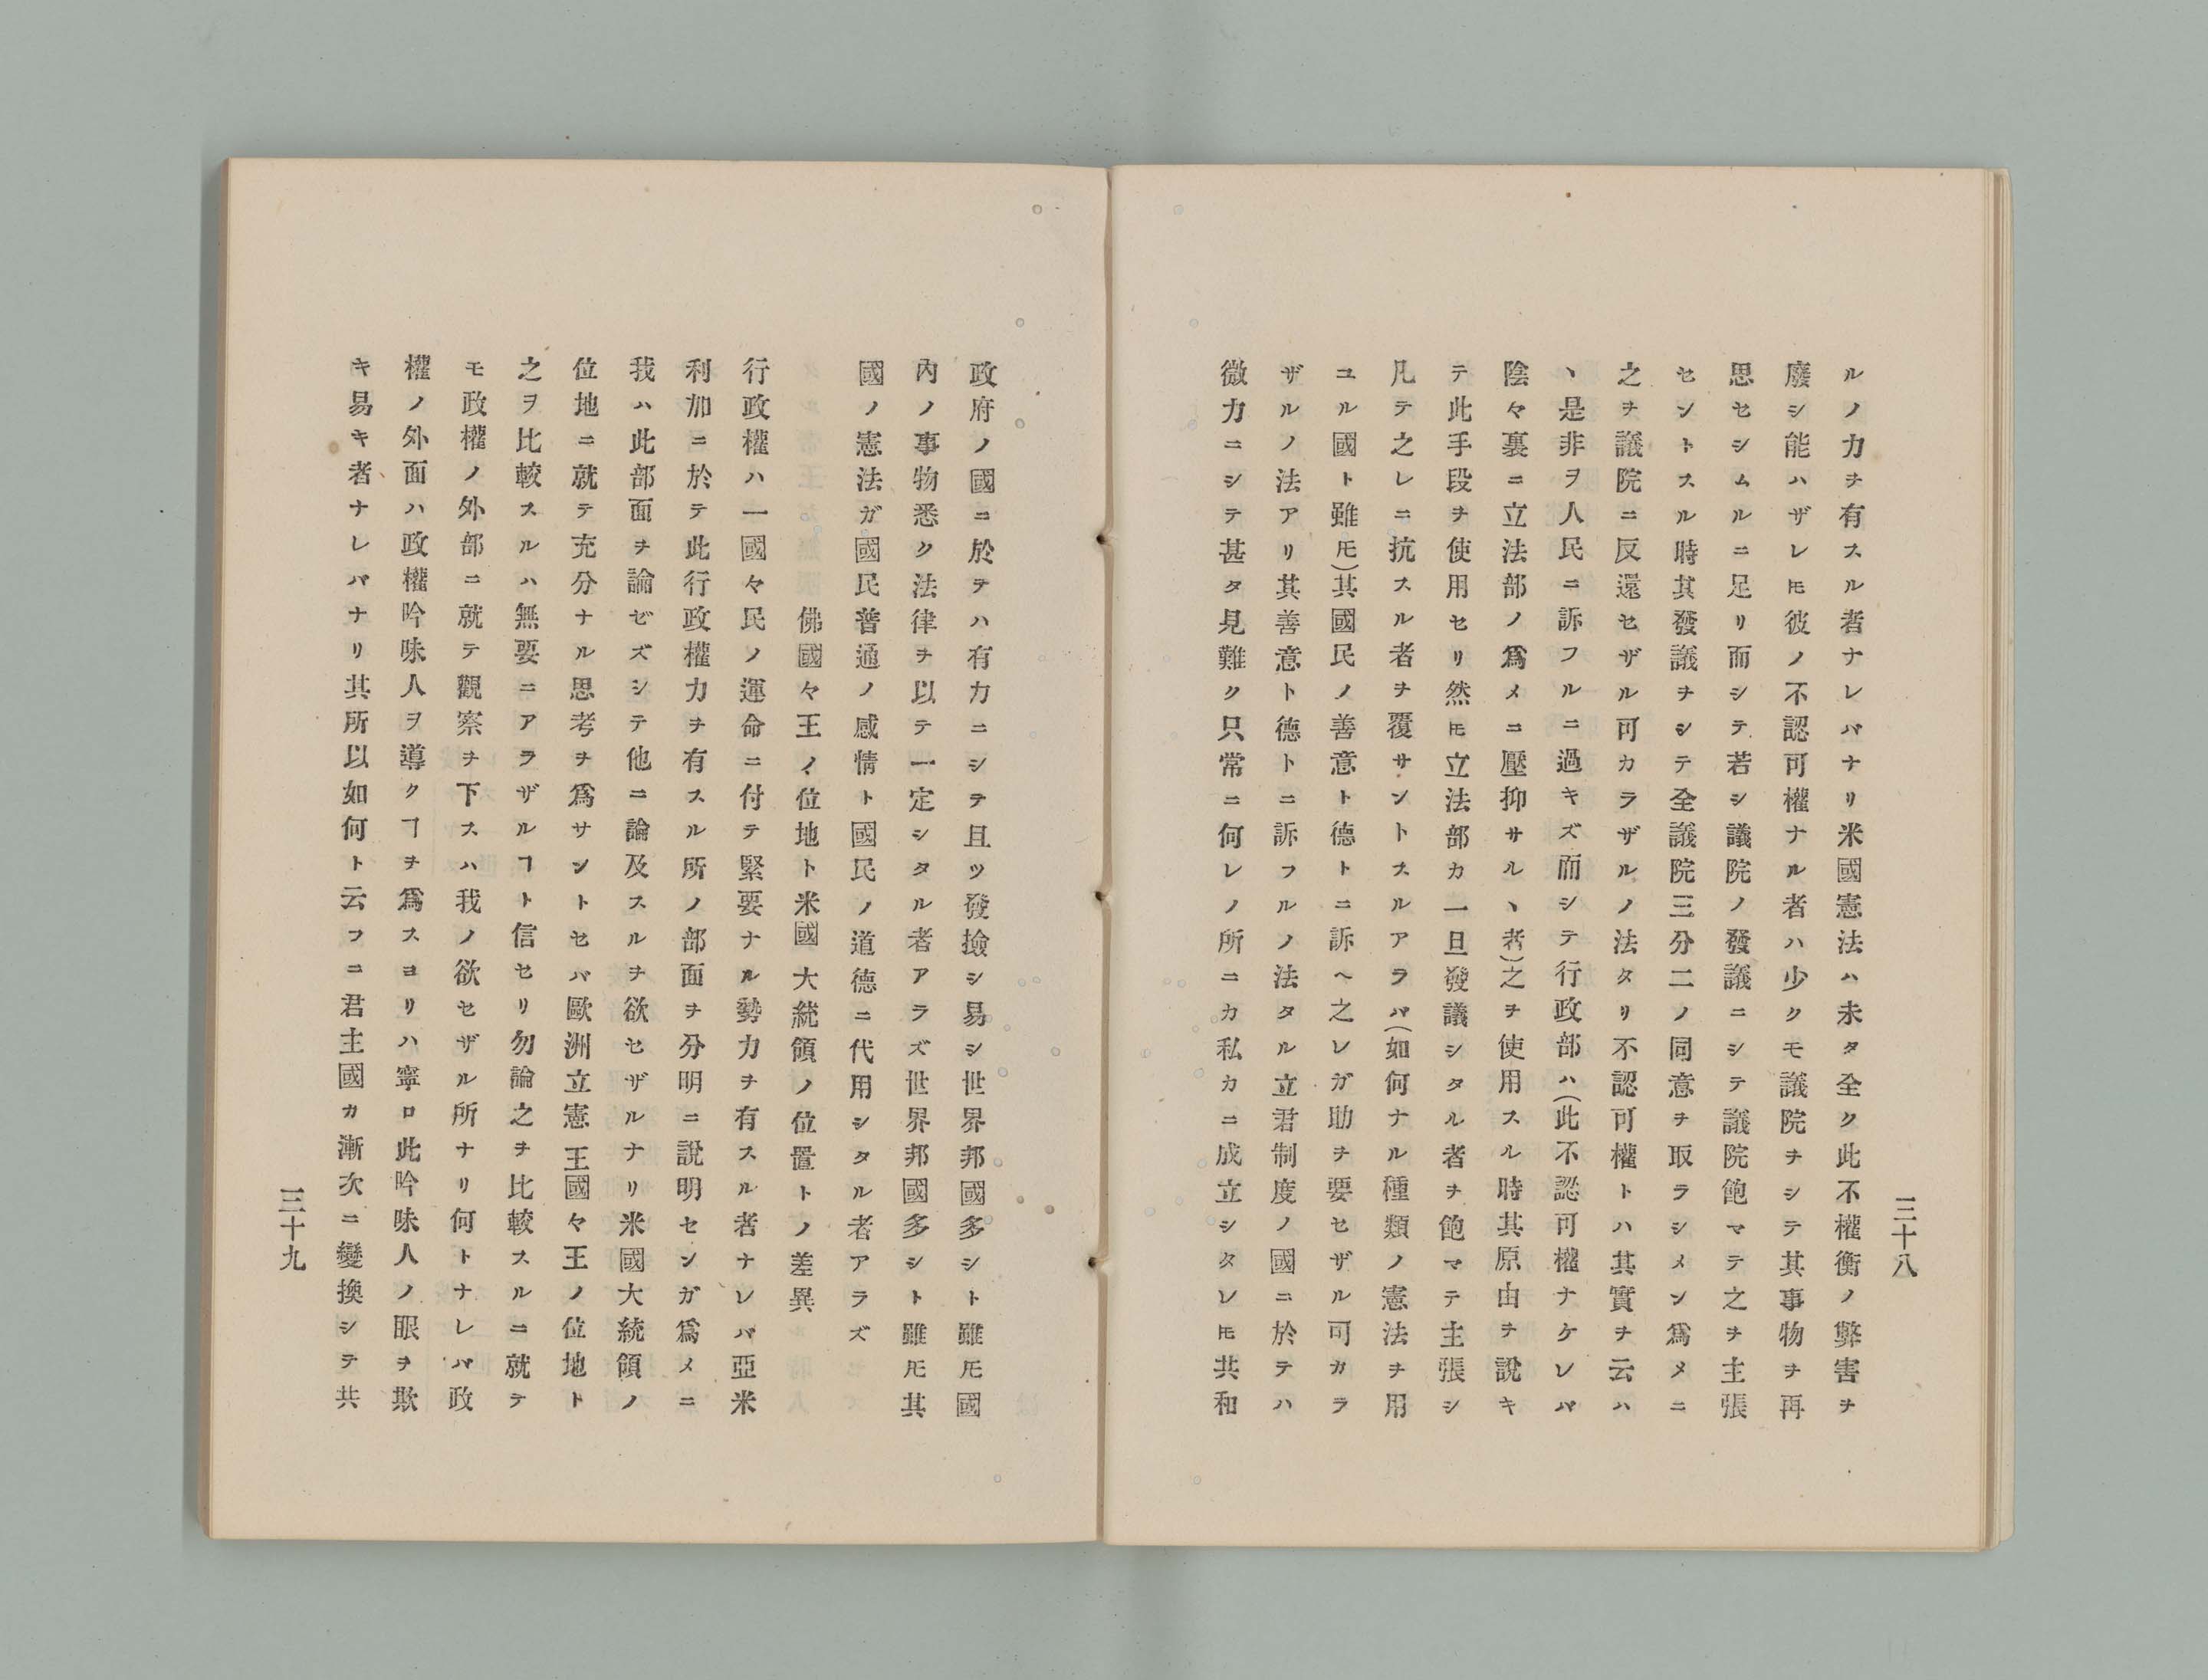 三十八
ルノ力ヲ有スル者ナレバナリ米國憲法ハ未タ全ク此不權衡ノ弊害ヲ
廢シ能ハザレ𪜈彼ノ不認可權ナル者ハ少クモ議院ヲシテ其事物ヲ再
思セシムルニ足リ而シテ若シ議院ノ發議ニシテ議院飽マテ之ヲ主張
セントスル時其發議ヲシテ全議院三分二ノ同意ヲ取ラシメン爲メニ
之ヲ議院ニ反還セザル可カラザルノ法タリ不認可權トハ其實ヲ云ハ
ヽ是非ヲ人民ニ訴フルニ過キズ而シテ行政部ハ(此不認可權ナケレバ
陰々裏ニ立法部ノ爲メニ壓抑サルヽ者)之ヲ使用スル時其原由ヲ說キ
テ此手段ヲ使用セリ然𪜈立法部カ一旦發議シタル者ヲ飽マテ主張シ
凡テ之レニ抗スル者ヲ覆サントスルアラバ(如何ナル種類ノ憲法ヲ用
ユル國ト雖𪜈)其國民ノ善意ト德トニ訴ヘ之レガ助ヲ要セザル可カラ
ザルノ法アリ其善意ト德トニ訴フルノ法タル立君制度ノ國ニ於テハ
微力ニシテ甚タ見難ク只常ニ何レノ所ニカ私カニ成立シタレ𪜈共和
政府ノ國ニ於テハ有力ニシテ且ツ發撿シ易シ世界邦國多シト雖𪜈國
內ノ事物悉ク法律ヲ以テ一定シタル者アラズ世界邦國多シト雖𪜈其
國ノ憲法ガ國民普通ノ感情ト國民ノ道德ニ代用シタル者アラズ
佛國々王ノ位地ト米國大統領ノ位置トノ差異
行政權ハ一國々民ノ運命ニ付テ緊要ナル勢力ヲ有スル者ナレバ亞米
利加ニ於テ此行政權力ヲ有スル所ノ部面ヲ分明ニ說明センガ爲メニ
我ハ此部面ヲ論ゼズシテ他ニ論及スルヲ欲セザルナリ米國大統領ノ
位地ニ就テ充分ナル思考ヲ爲サントセバ歐洲立憲王國々王ノ位地ト
之ヲ比較スルハ無要ニアラザルヿト信セリ勿論之ヲ比較スルニ就テ
モ政權ノ外部ニ就テ觀察ヲ下スハ我ノ欲セザル所ナリ何トナレバ政
權ノ外面ハ政權吟味人ヲ導クヿヲ爲スヨリハ寧ロ此吟味人ノ眼ヲ欺
キ易キ者ナレバナリ其所以如何ト云フニ君主國カ漸次ニ變換シテ共
三十九